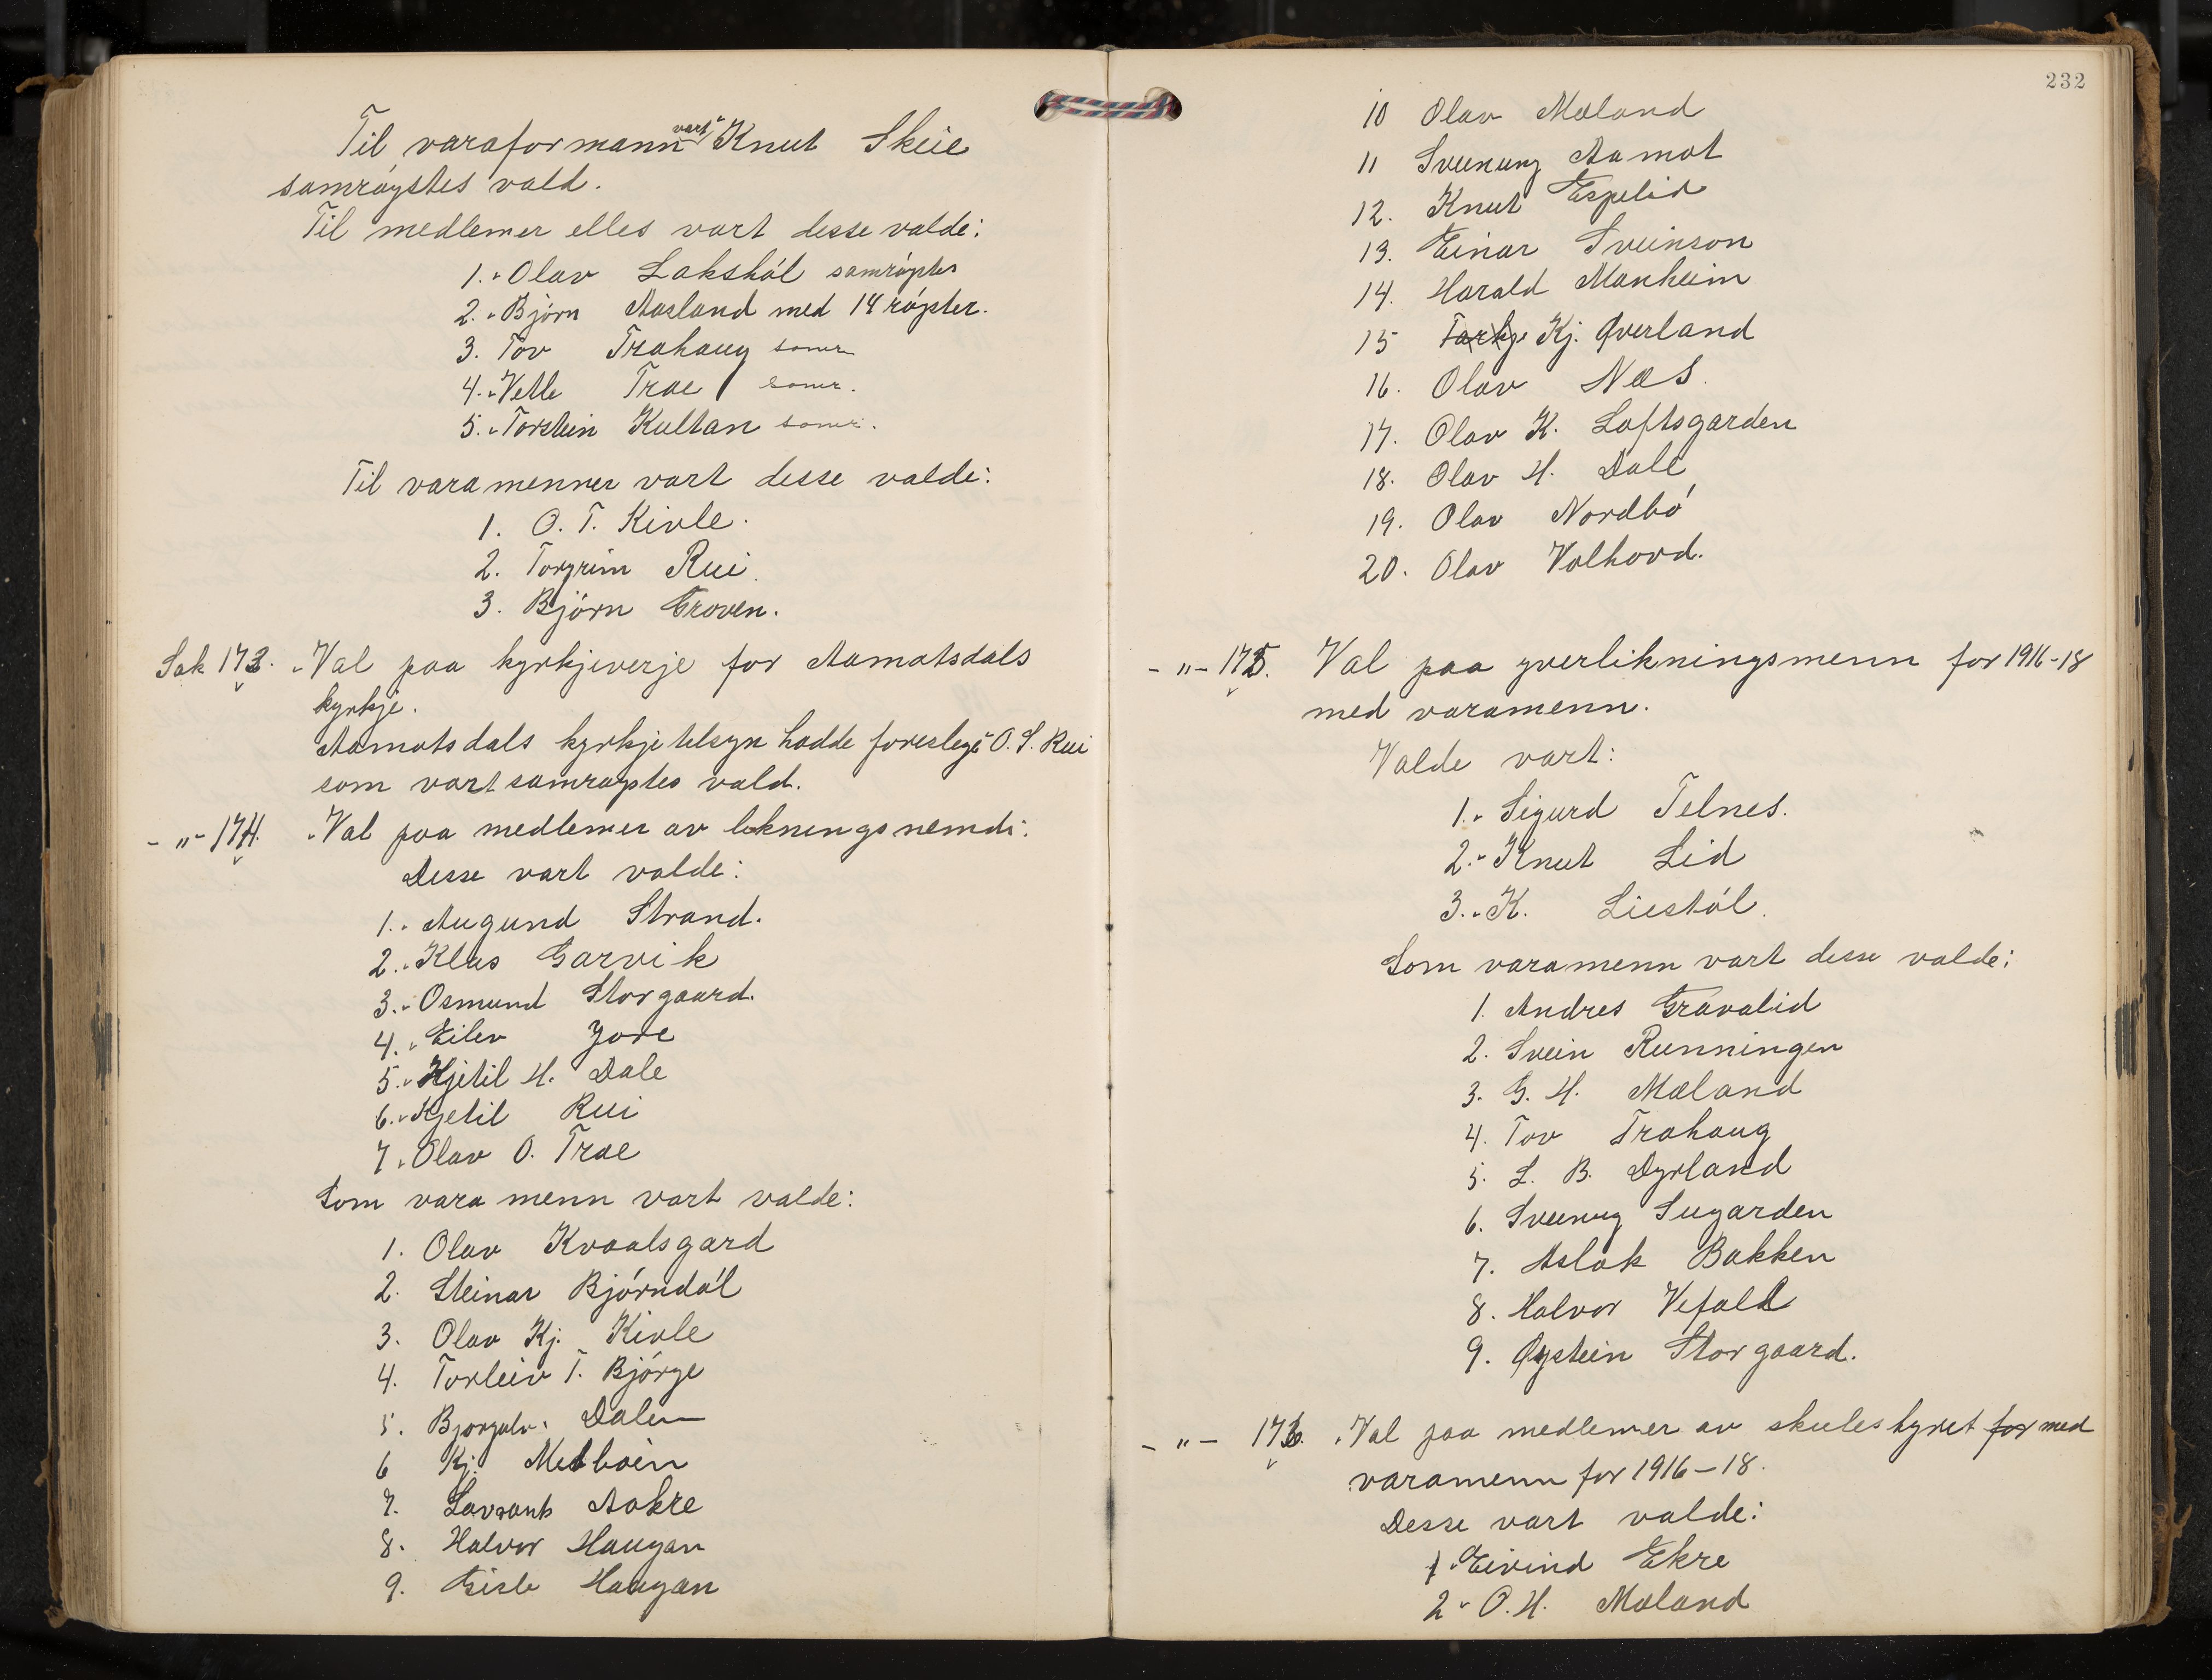 Til varaformann vart Knut Skeie
samrøystes vald.
Til medlemer elles vart desse valde:
1. Olav Lakshól samrópter
2. Bjórn Aasland med 14 rópster.
3. Tov Trahaug samr
4. Vetle Trae samr.
5. Torstein Kultan samr.
Til varamenner vart desse valde:
1. O. T. Kivle.
2. Torgrim Rui.
3. Bjórn Groven.
Sak 173. Val paa kyrkjeverje for Aamotsdals
kyrkje.
Aamotsdals kyrkjetilsyn hadde foreslege O. S. Rui
som vart samrøystes vald.
- " - 174. Val paa medlemer av likningsnemdi:
Desse vart valde:
1. Augund Strand.
2. Klas Garvik
3. Osmund Storgaard.
4. Eilev Jore
5. Kjetil H. Dale
6. Kjetil Rui
7. Olav O. Trae
Som vara menn vart valde:
1. Olav Kvaalsgard
2. Steinar Bjórndál
3. Olav Kj. Kivle
4. Torleiv T. Bjórge
5. Bjorgulv. Dalen
6 Kj. Melboin
7. Lavrants Aakre
8. Halvor Haugan
9. Gisle Haugan
232
10 Olav Mæland
11 Sveinung Aamot
12. Knut Espelid
13. Einar Sveinson
14. Harald Manheim
15 Tarkje Kj. Øverland
16. Olav Næs.
17. Olav K. Loftsgarden
18. Olav H. Dale
19. Olav Nordbó
20. Olav Valhovd.
- " - 175. Val paa yverlikningsmenn for 1916-18
med varamenn.
Valde vart:
1. Sigurd Telnes.
2. Knut Lid
3. K. Liestól.
Som varamenn vart desse valde:
1. Andres Gravalid
2. Svein Runningen
3. G. H. Mæland
4. Tov Trahaug
5. L. B. Dyrland
6. Sveinung Sugarden
7. Aslak Bakken
8. Halvor Vefald
9. Øystein Storgaard.
- " - 176. Val paa medlemer av skulestyret for med
varamenn for 1916-18.
Desse vart valde:
1. Eivind Ekre
2. O. H. Mæland